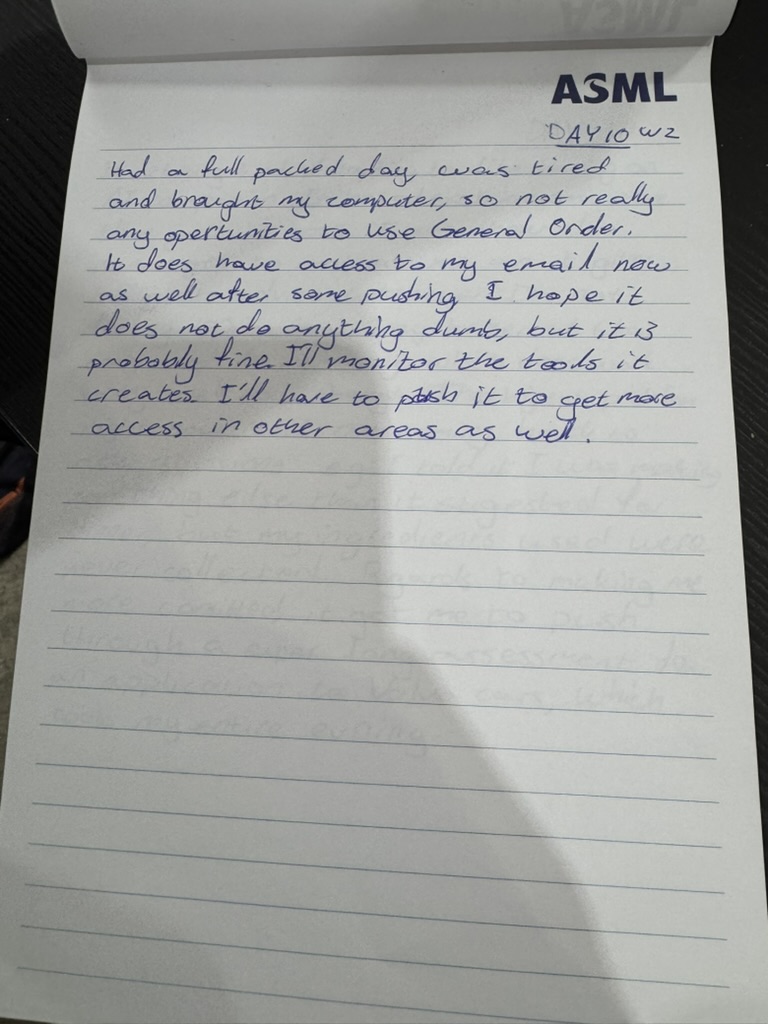 ASML
DAY 10 W2
Had a full packed day, was tired
and brought my computer, so not really
any opertunities to use General Order.
It does have access to my email now
as well after some pushing, I hope it
does not do anything dumb, but it is
probably fine. I'll monitor the tools it
creates. I'll have to push it to get more
access in other areas as well.